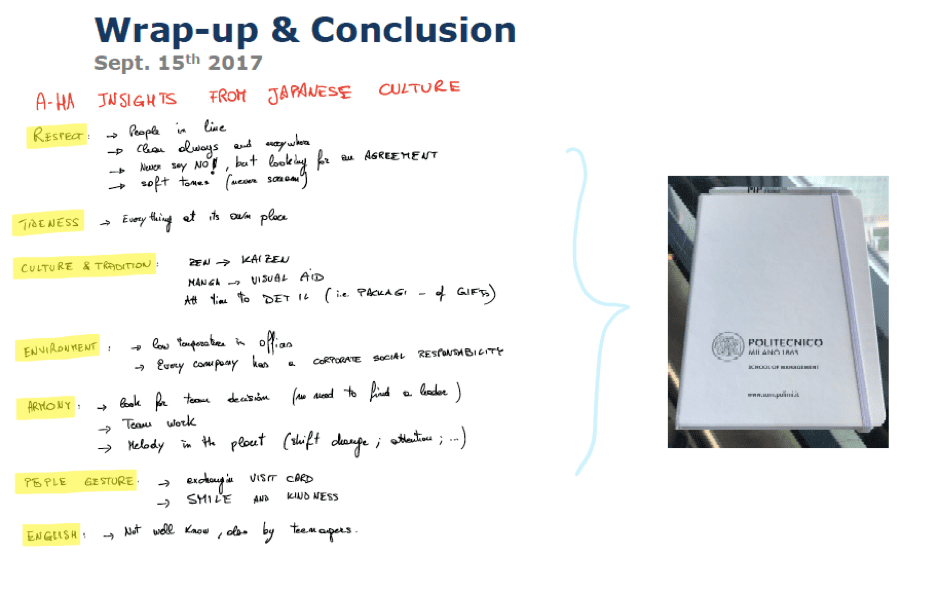 Wrap-up & Conclusion
Sept. 15th 2017
A-HA INSIGHTS FROM JAPANESE CULTURE
RESPECT: → People in line
→ Clean always and everywhere
→ Never say NO!, but looking for an AGREEMENT
→ soft tones (never scream)
TIDENESS → Everything at its own place
CULTURE & TRADITION: ZEN → KAIZEN
MANGA → VISUAL AID
to DET IL (i.e. PACKAGI - of GIFTs)
ENVIRONMENT: → low temperature in offices
→ Every company has a CORPORATE SOCIAL RESPONSABILITY
ARMONY: → look for team decision (no need to find a leader)
→ Team work
→ Melody in the plant (shift change; attention; ...)
PEOPLE GESTURE: → exchangin VISIT CARD
→ SMILE AND KINDNESS
ENGLISH: → Not well know, also by teenagers.
POLITECNICO
MILANO 1863
SCHOOL OF MANAGEMENT